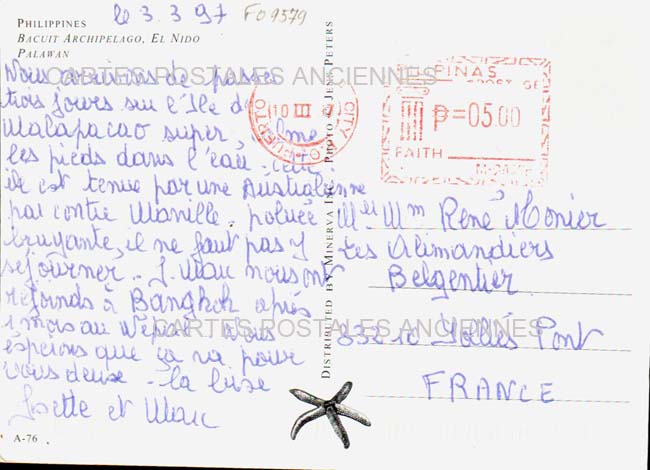 le 3.3.97 FO9579
PHILIPPINES
BACUIT ARCHIPELAGO, EL NIDO
PALAWAN
Nous arrivons de passer
trois jours sur l'Ile de
Malapacao super, calme
les pieds dans l'eau. cette
ile est tenue par une Australienne
par contre Manille, poluée
bruyante, il ne faut pas y
sejourner. J. Marc nous ont
rejoinds à Bangkok après
1 mois au Nepal. Nous
esperons que ça va pour
vous deux. la bise
Josette et Marc
A-76
DISTRIBUTED BY MINERVA INC. PHOTO © JESS PETERS
PUERTO CITY
10 III 97
PINAS
P=05.00
FAITH
Mr Mm René Monier
Les Alimandiers
Belgentier
83210 Solliès Pont
FRANCE
CARTES POSTALES ANCIENNES
CARTES POSTALES ANCIENNES